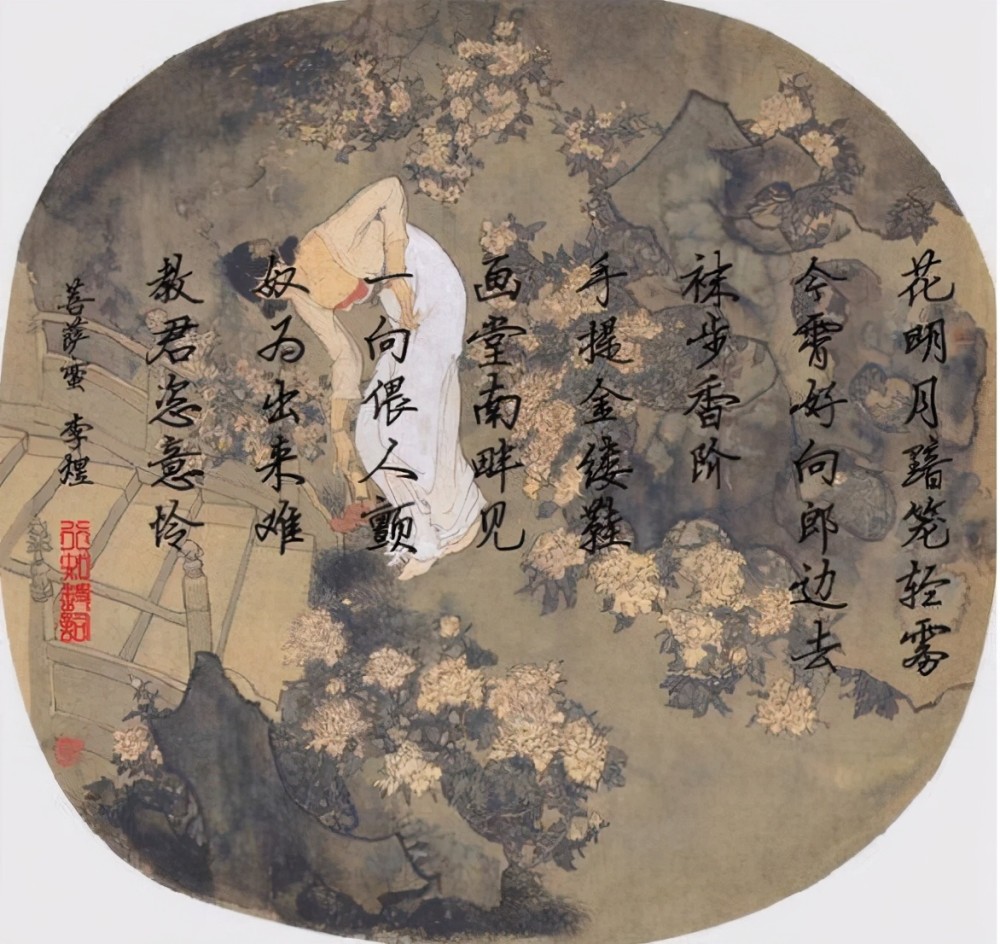 花明月黯笼轻雾
今霄好向郎边去
袜步香阶
手提金缕鞋
画堂南畔见
一向偎人颤
奴为出来难
教君恣意怜
菩萨蛮 李煜